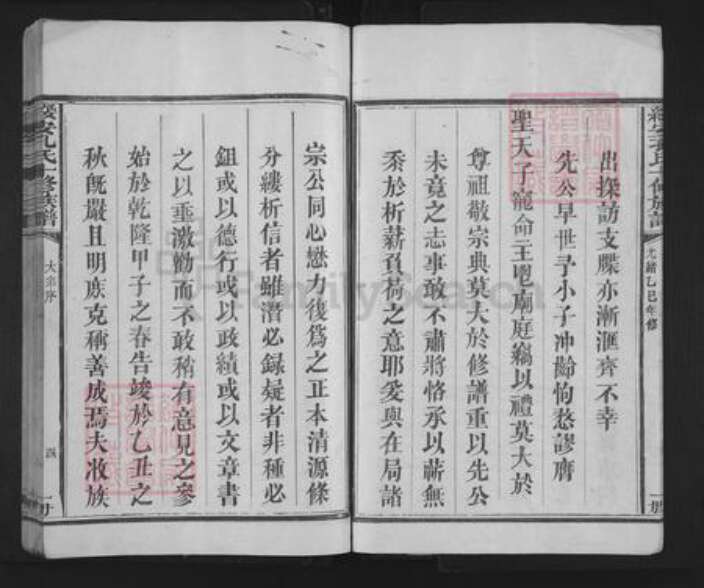 綏安孔氏一修族譜
光緒乙巳年修
一册
出探訪支牒亦漸滙齊不幸
先公早世予小子冲齡恂愁謬膺
聖天子寵命主鬯廟庭竊以禮莫大於
尊祖敬宗典莫大於修譜重以先公
未竟之志事敢不肅將恪承以蘄無
忝於析薪負荷之意耶爰與在局諸
宗公同心懋力復為之正本清源條
分縷析信者雖潛必録疑者非種必
鉏或以德行或以政績或以文章書
之以垂激勸而不敢稍有意見之參
始於乾隆甲子之春告竣於乙丑之
秋旣嚴且明庶克稱善成焉夫收族
綏安孔氏一修族譜
大宗序
四
一册
FamilySearch